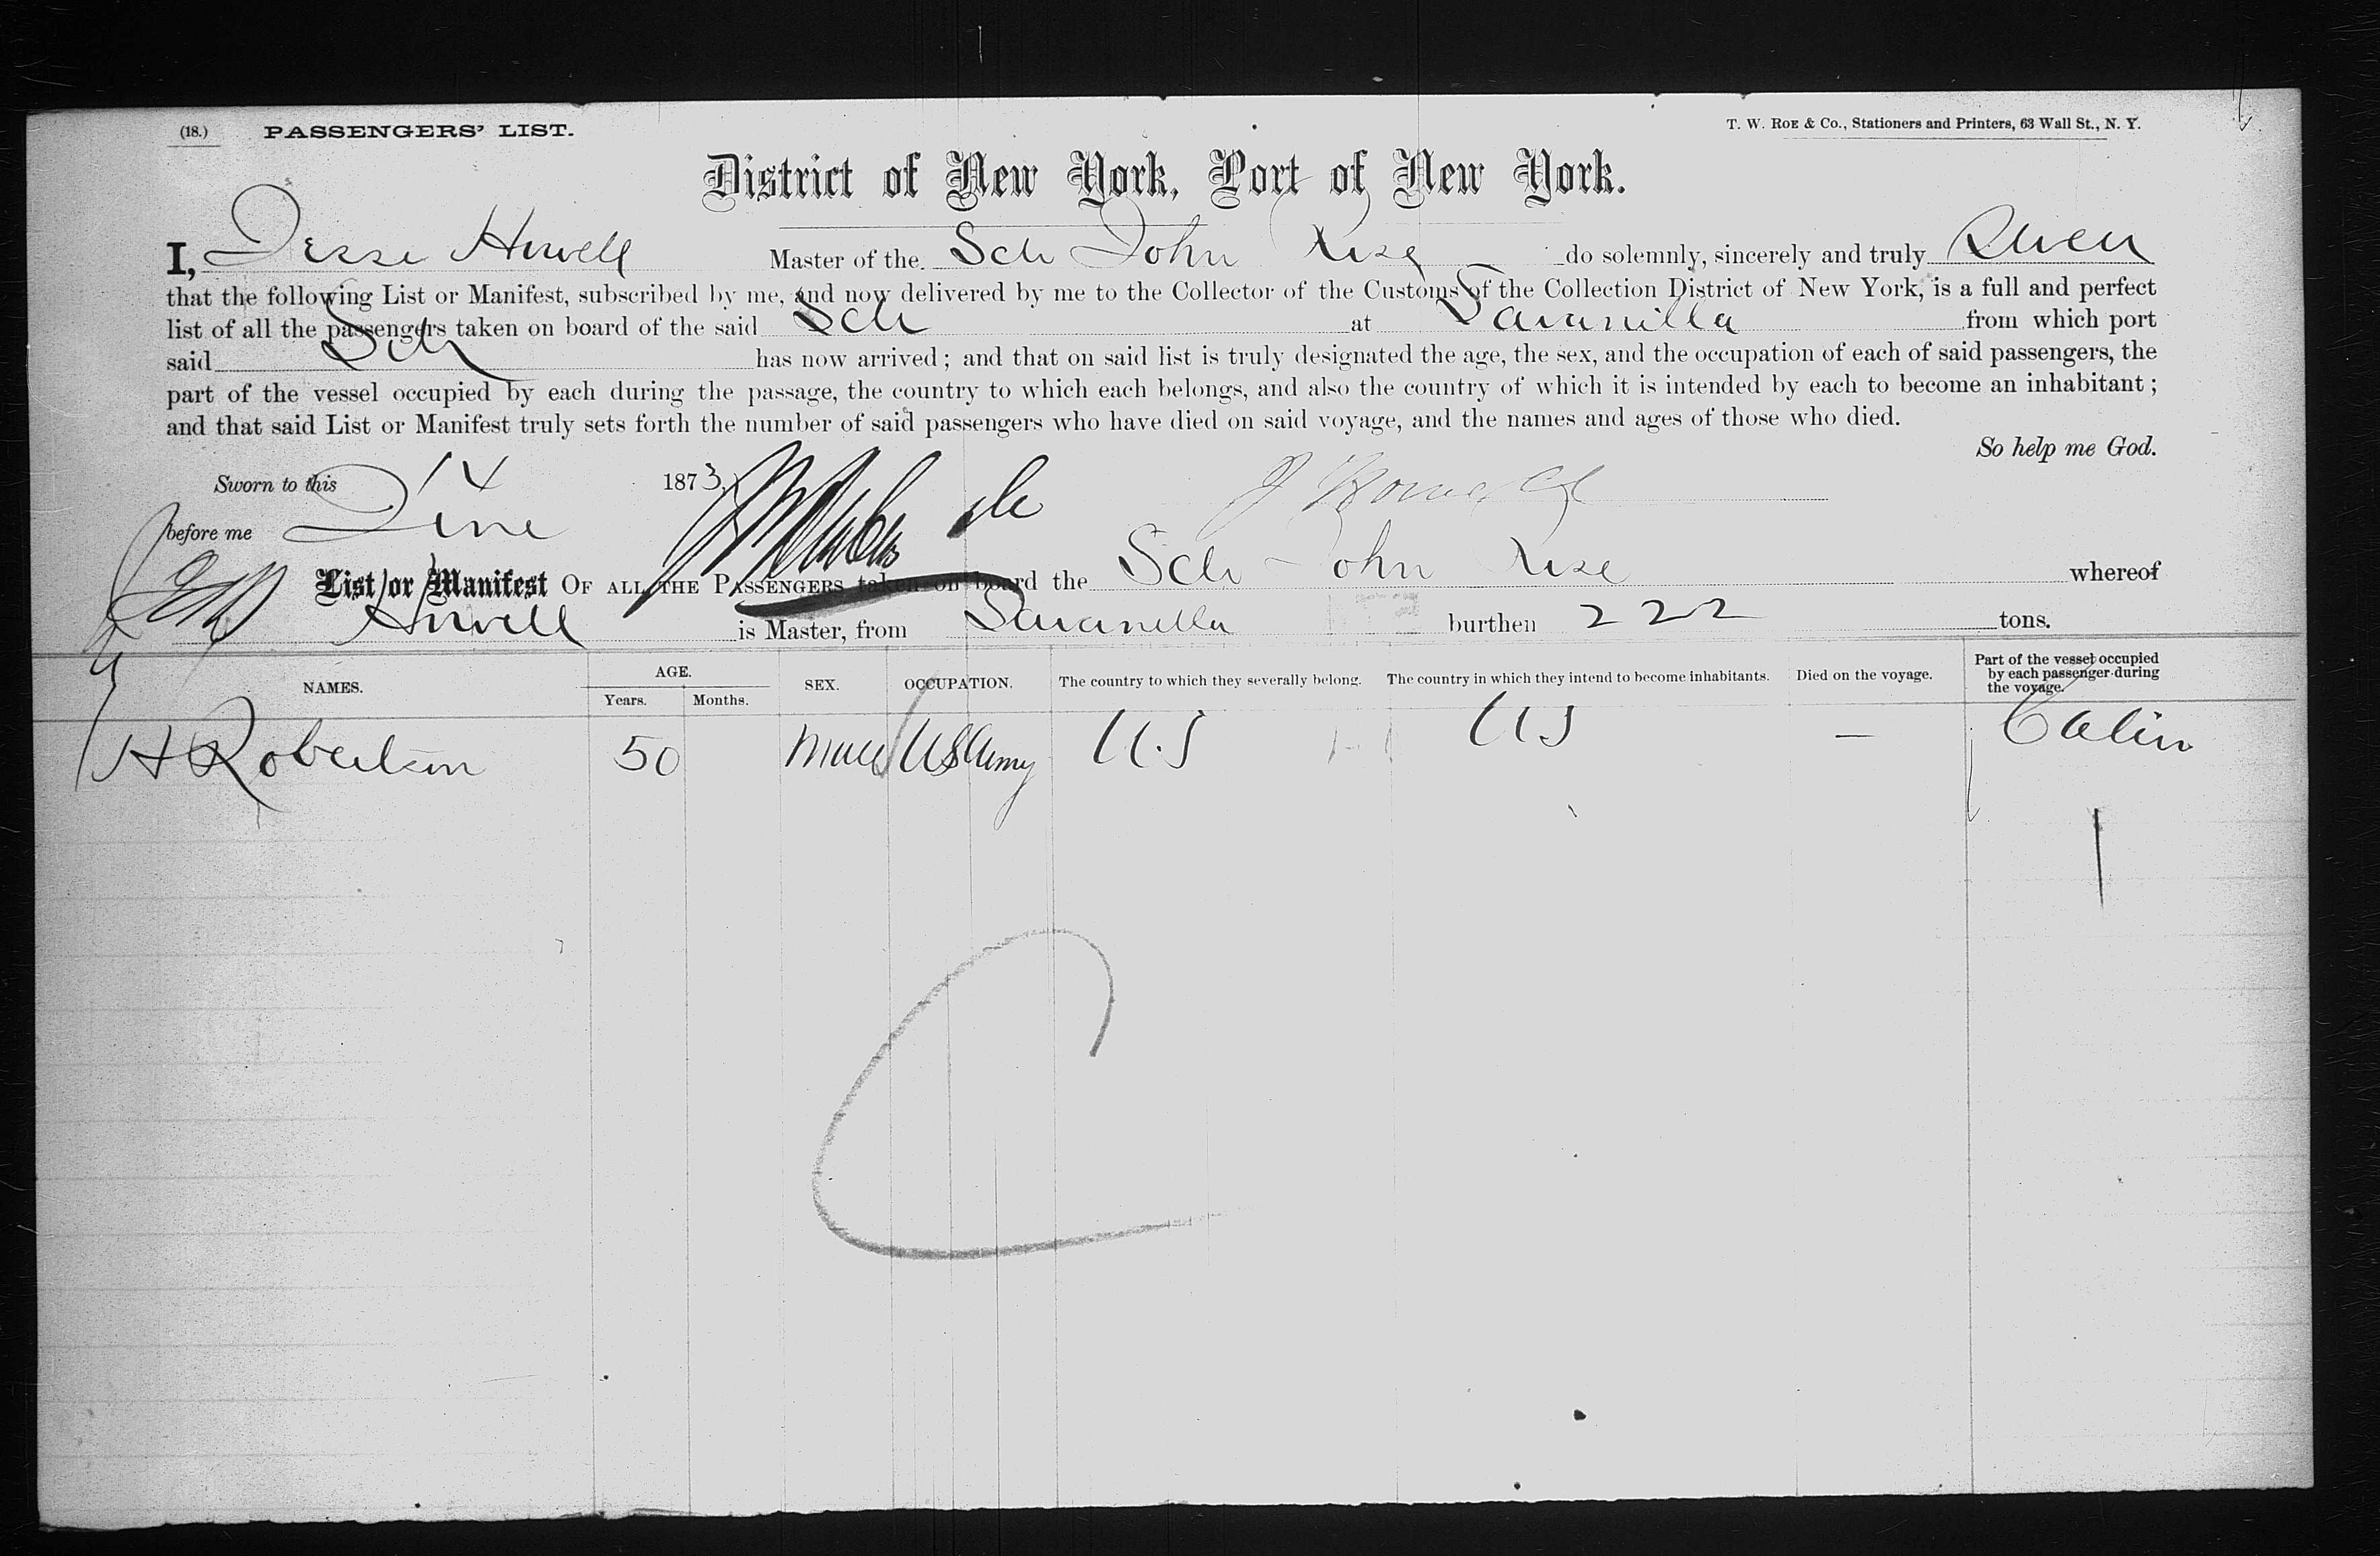 (18.) PASSENGERS' LIST. T. W. ROE & Co., Stationers and Printers, 63 Wall St., N. Y.
District of New York, Port of New York.
I, Jesse Howell Master of the Sch John Rose do solemnly, sincerely and truly Swear
that the following List or Manifest, subscribed by me, and now delivered by me to the Collector of the Customs of the Collection District of New York, is a full and perfect
list of all the passengers taken on board of the said Sch at Savanilla from which port
said Sch has now arrived; and that on said list is truly designated the age, the sex, and the occupation of each of said passengers, the
part of the vessel occupied by each during the passage, the country to which each belongs, and also the country of which it is intended by each to become an inhabitant;
and that said List or Manifest truly sets forth the number of said passengers who have died on said voyage, and the names and ages of those who died.
So help me God.
Sworn to this 14 1873,
before me June
List or Manifest OF ALL THE PASSENGERS taken on board the Sch John Rose whereof
Howell is Master, from Savanilla burthen 222 tons.
NAMES. AGE. SEX. OCCUPATION. The country to which they severally belong. The country in which they intend to become inhabitants. Died on the voyage. Part of the vessel occupied
by each passenger during
the voyage.
Years. Months.
H Robertson 50 Male US Army U.S US — Cabin